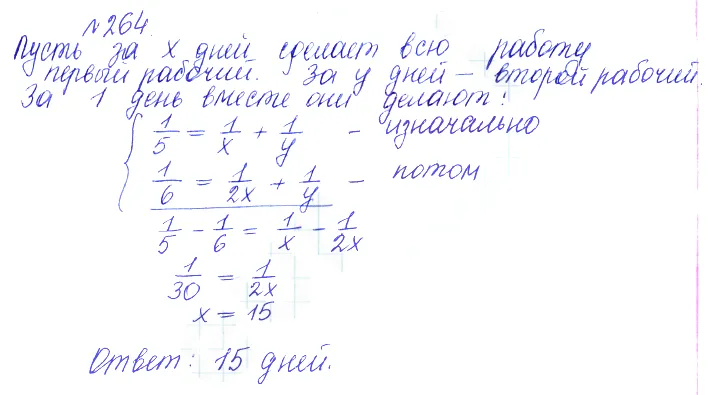 №264.
Пусть за x дней сделает всю работу
первый рабочий. За y дней – второй рабочий.
За 1 день вместе они делают:
1/5 = 1/x + 1/y – изначально
1/6 = 1/2x + 1/y – потом
1/5 - 1/6 = 1/x - 1/2x
1/30 = 1/2x
x = 15
Ответ: 15 дней.